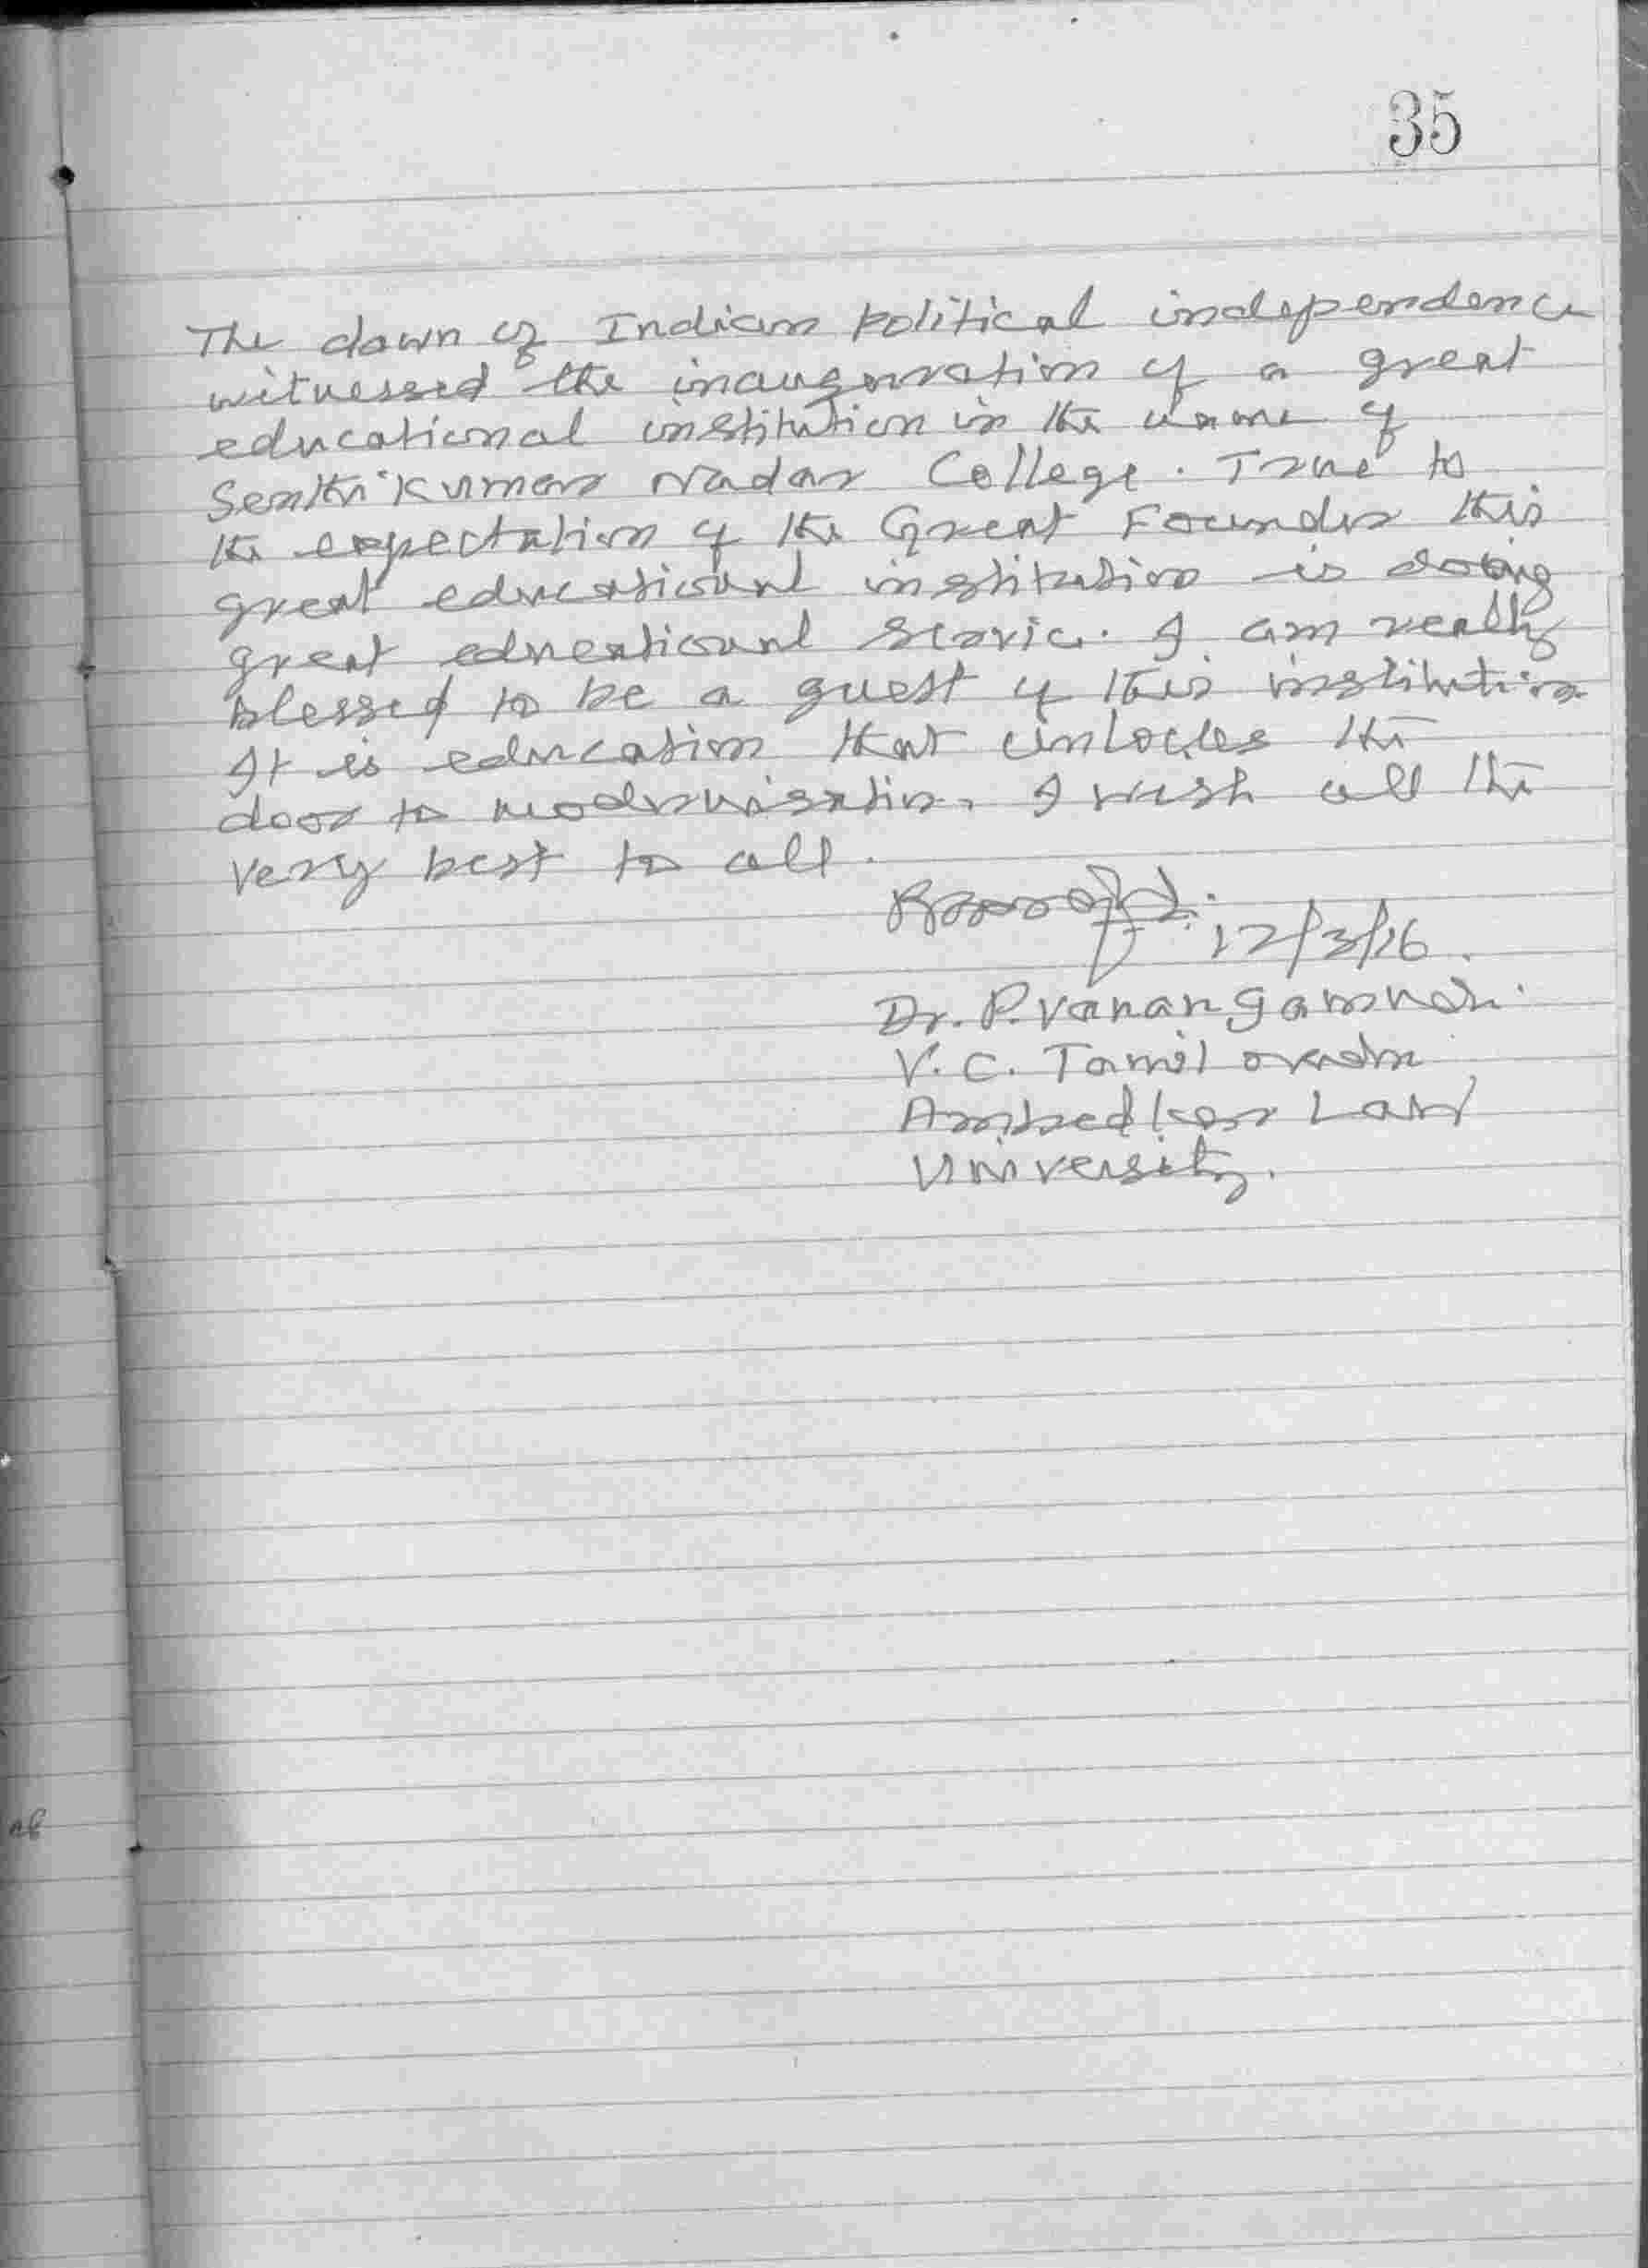 35
The dawn of Indian political independence
witnessed the inauguration of a great
educational institution in the name of
Senthikumar Nadar College. True to
the expectation of the Great Founder this
great educational institution is doing
great educational service. I am really
blessed to be a guest of this institution
It is education that unlocks the
door to modernisation. I wish all the
very best to all.
12/3/16.
Dr. P. Vanangamudi.
V.C. Tamil
Ambedkar Law
University.